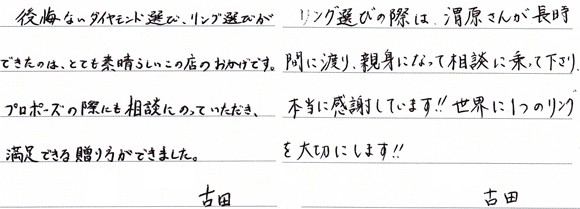 後悔ないダイヤモンド選び、リング選びが
できたのは、とても素晴らしいこの店のおかげです。
プロポーズの際にも相談にのっていただき、
満足できる贈り方ができました。
古田
リング選びの際は、渭原さんが長時
間に渡り、親身になって相談に乗って下さり、
本当に感謝しています!! 世界に1つのリング
を大切にします!!
古田